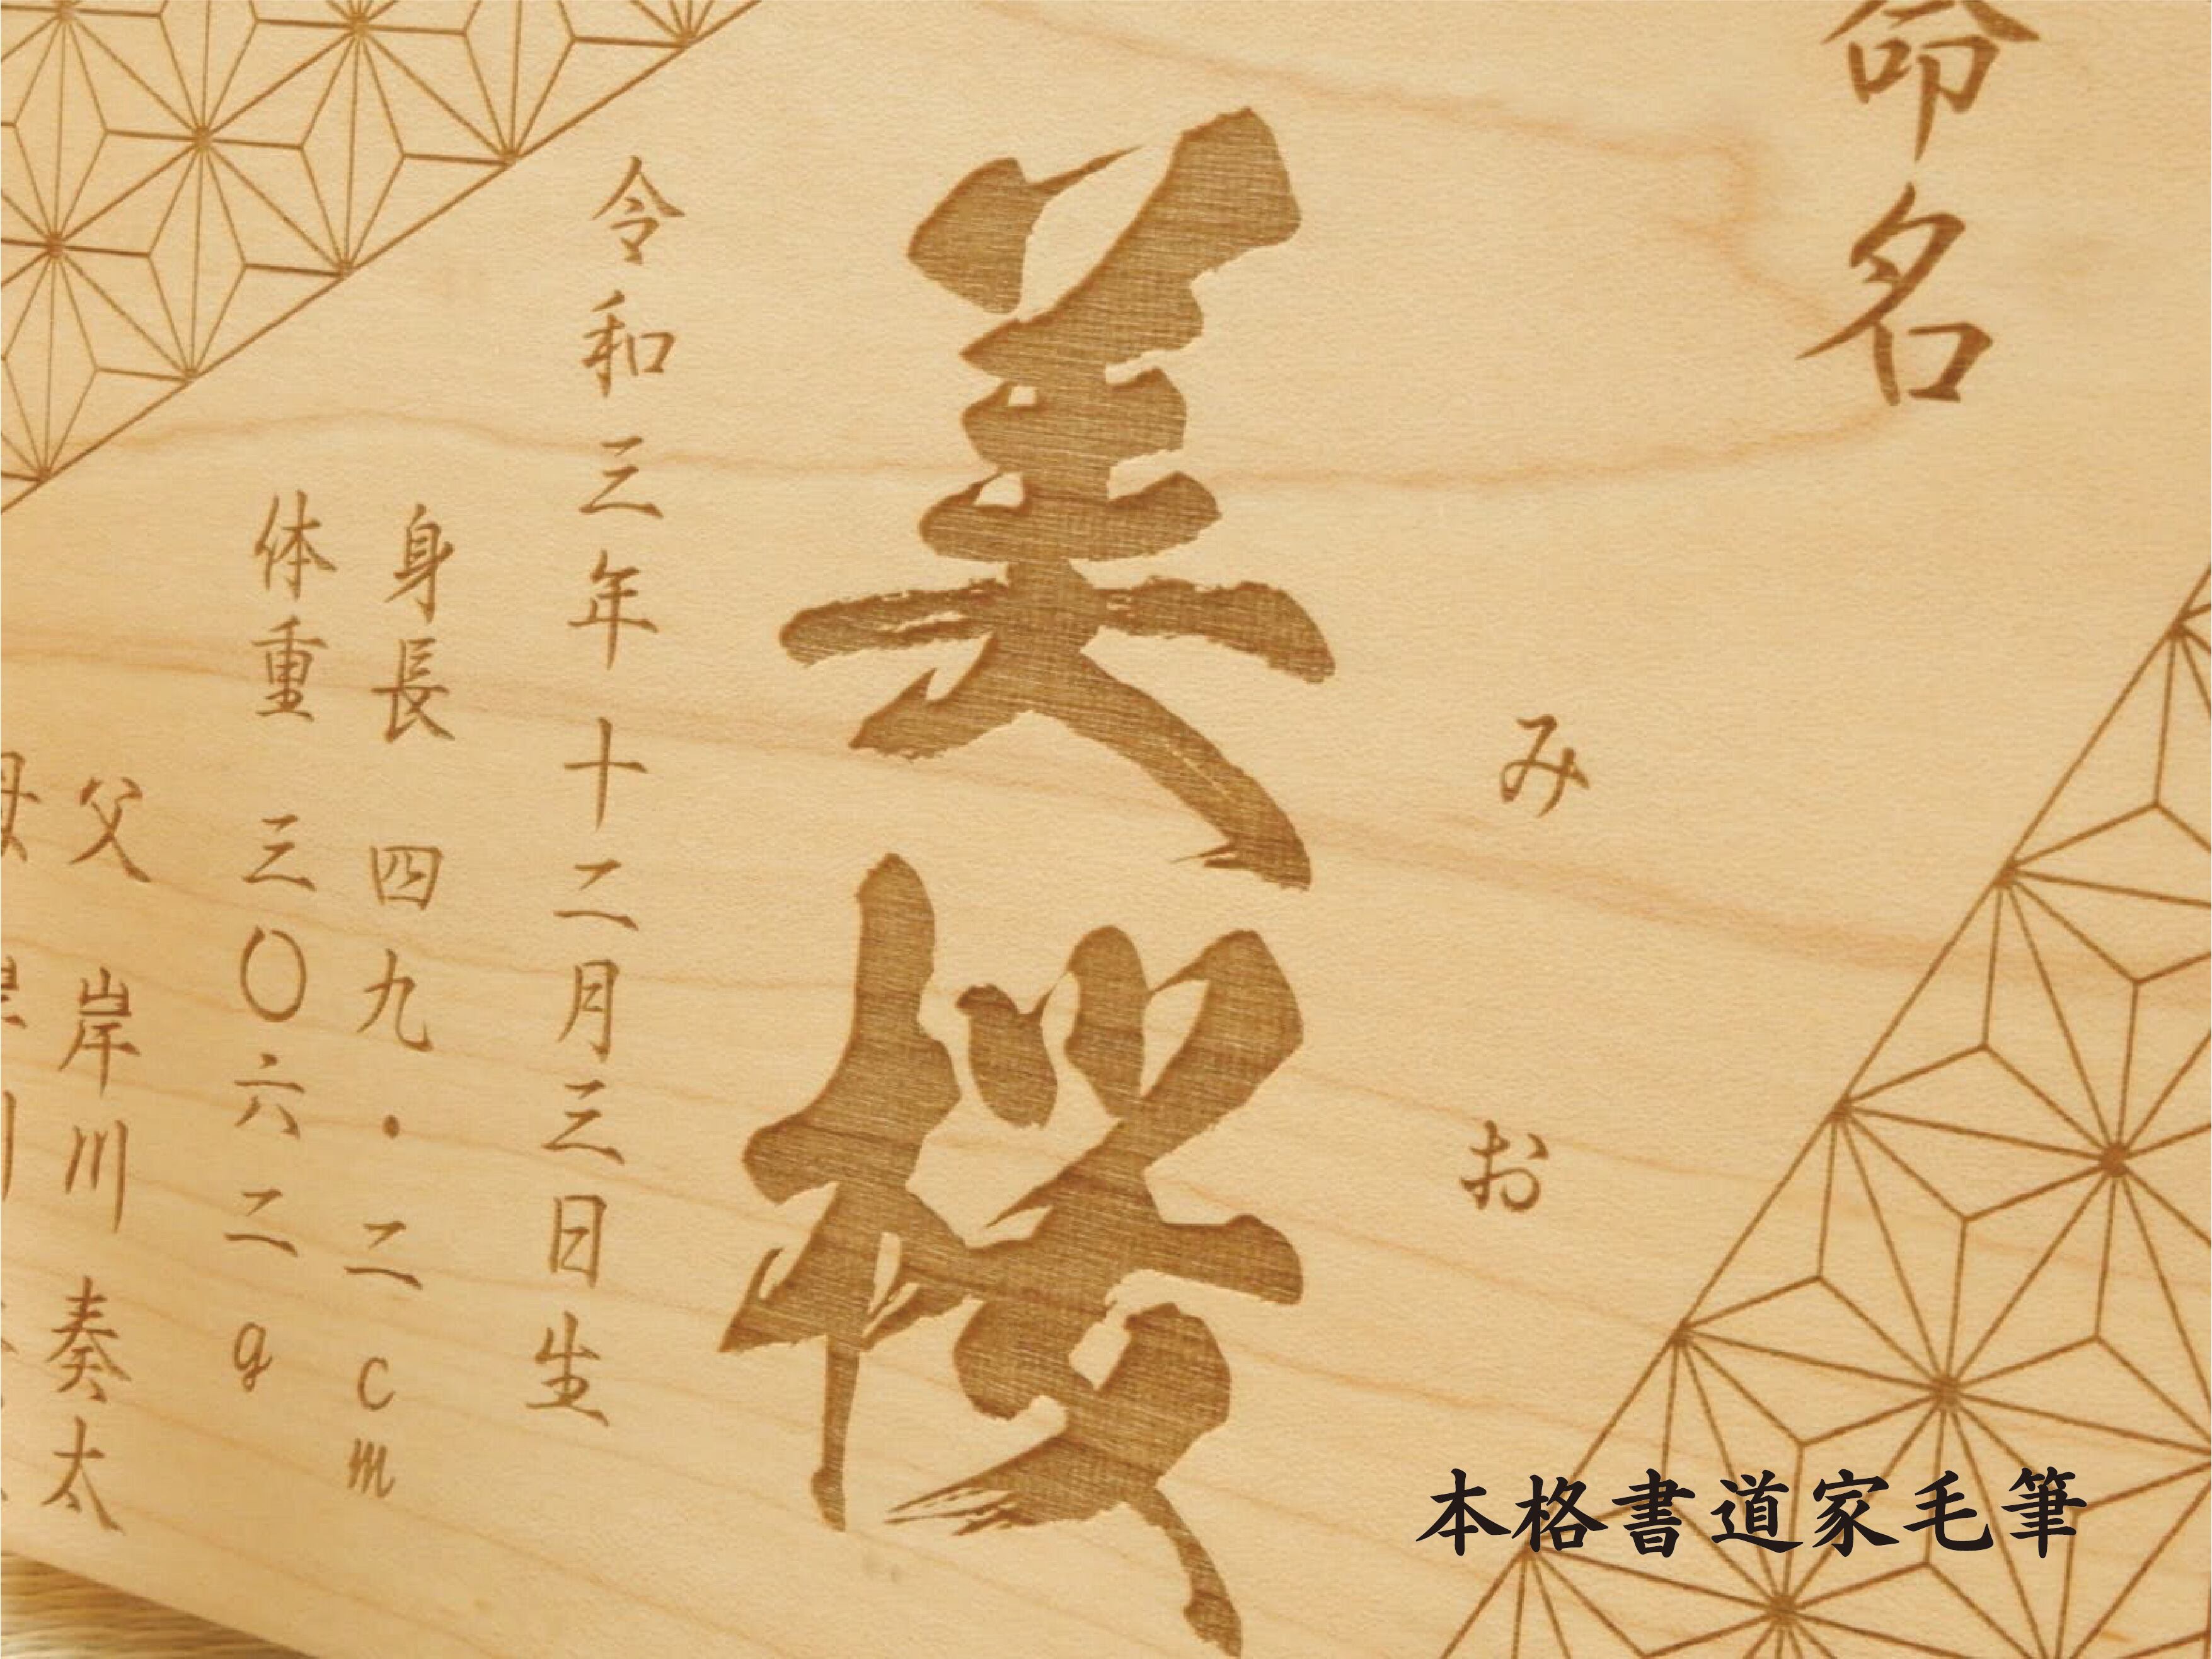 命名
みお
美桜
令和三年十二月三日生
身長 四九・二cm
体重 三〇六二g
父 岸川 奏太
母
本格書道家毛筆